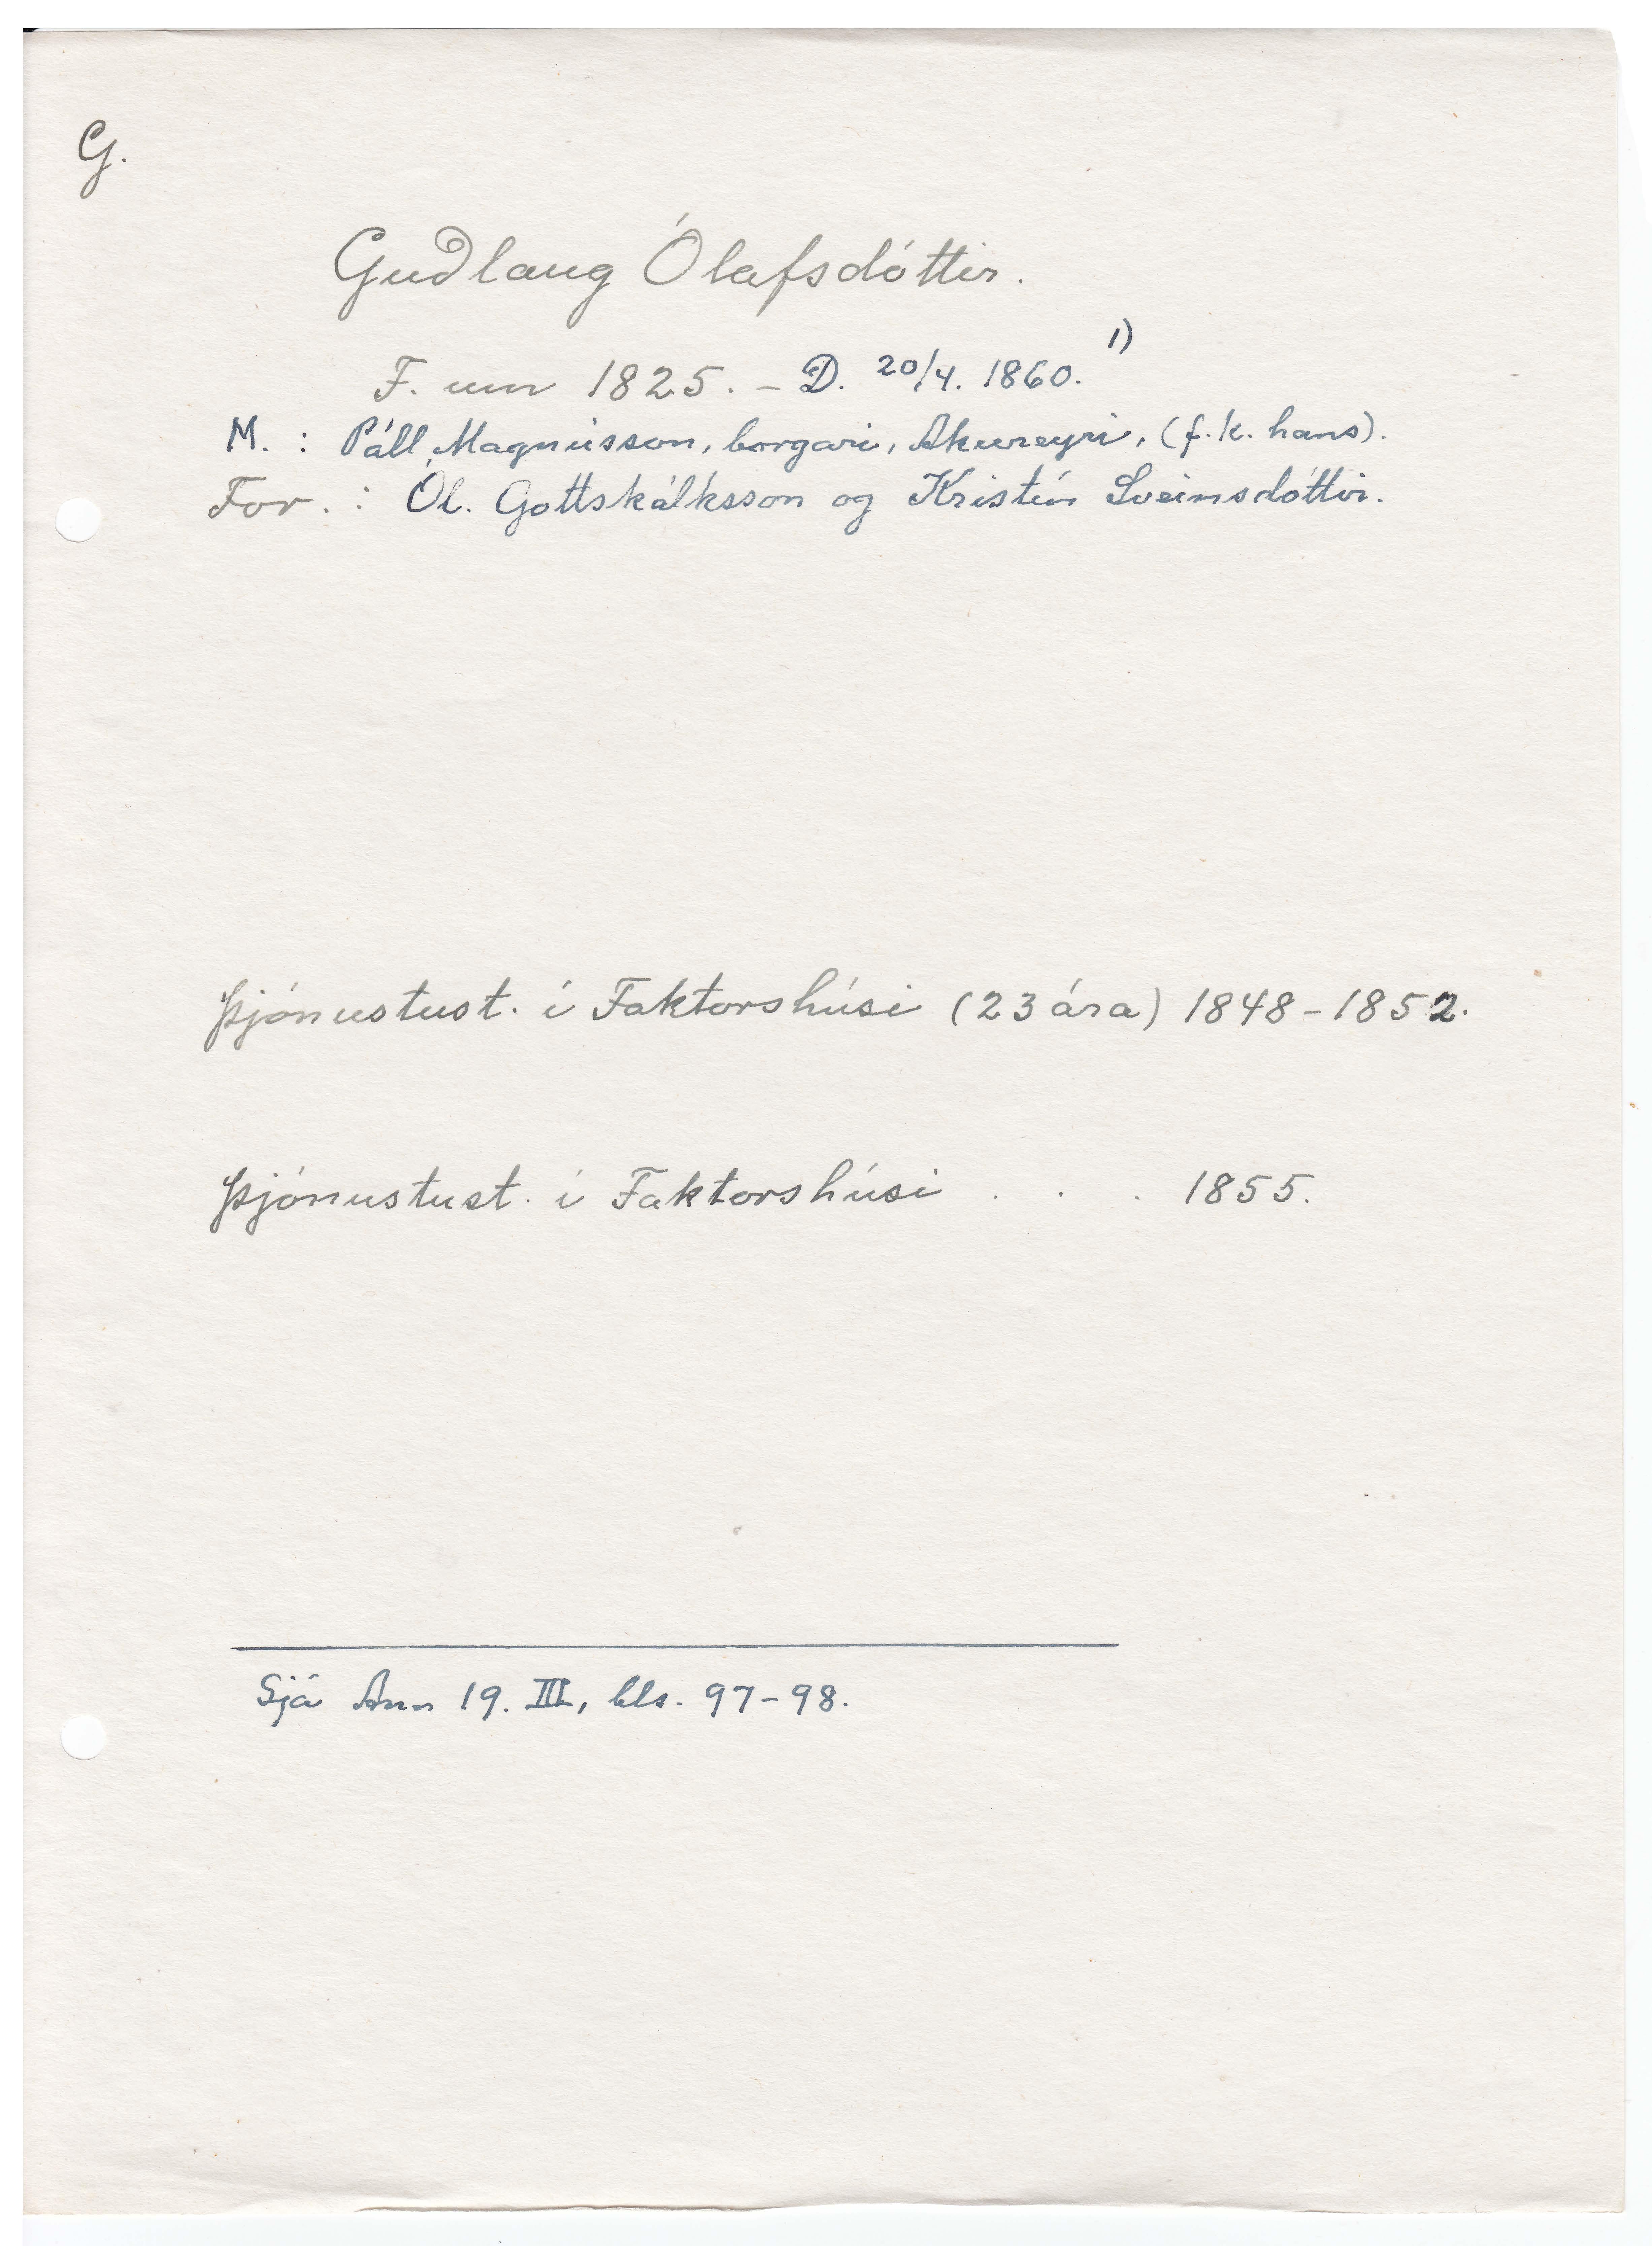 G.
Guðlaug Ólafsdóttir.
F. um 1825. – D. 20/4. 1860. 1)
M. : Páll Magnússon, borgari, Akureyri, (f.k. hans).
For. : Ól. Gottskálksson og Kristín Sveinsdóttir.
Þjónustust. í Faktorshúsi (23 ára) 1848-1852.
Þjónustust. í Faktorshúsi . . . 1855.
Sjá Ann 19. III, bls. 97-98.